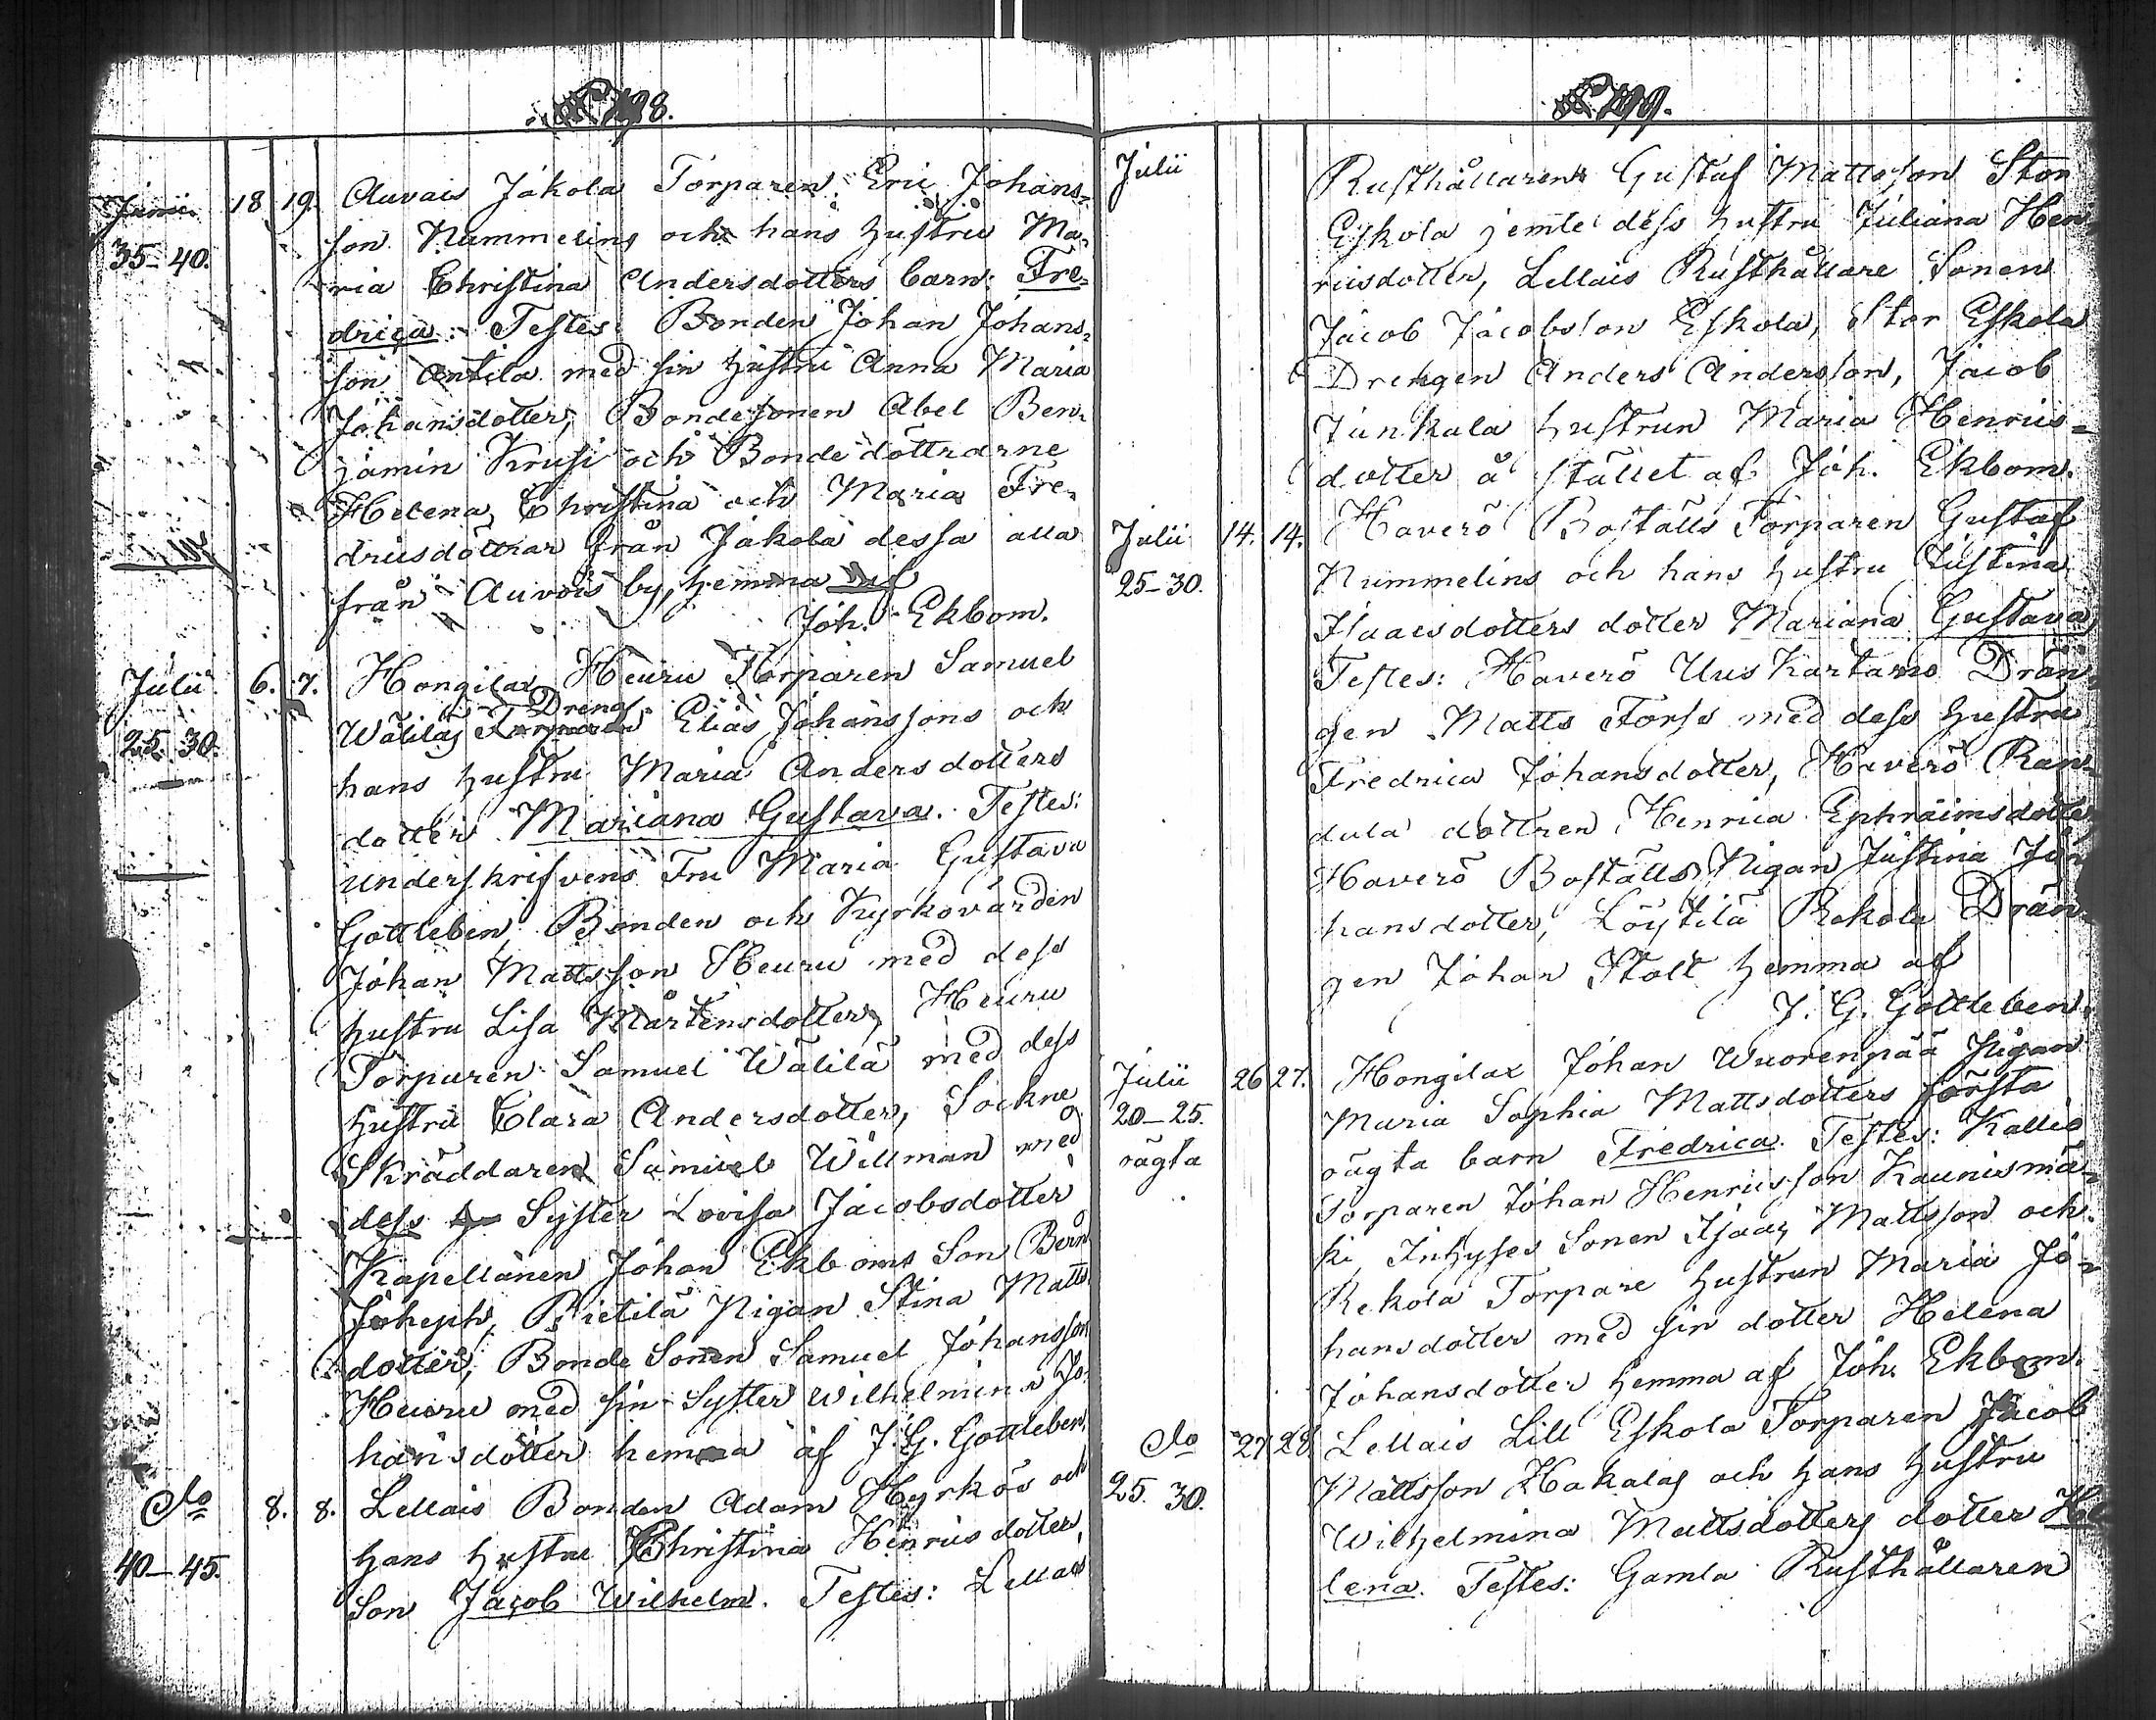 98.
Junii 18 19. Auvais Jakola Torparen Eric Johans=
35-40. son Nummelins och hans hustru Ma=
ria Christina Andersdotters barn: Fre=
drica. Testes: Bonden Johan Johans=
son Antila med sin hustru Anna Maria
Johansdotter, Bondesonen Abel Ben=
jamin Krusi och Bondedöttrarne
Helena Christina och Maria Fre=
dricsdöttrar från Jakola dessa alla
från Auvois by, hemma af
Joh. Ekbom.
Julii 6. 7. Hongilax Heuru Torparen Samuel
Dreng
Wälilas Elias Johanssons och
25. 30. hans hustru Maria Andersdotters
dotter Mariana Gustava. Testes:
underskrifvens Fru Maria Gustava
Gottleben, Bonden och Kyrkovärden
Johan Mattsson Heuru med dess
hustru Lisa Mårtensdotter, Heuru
Torparen Samuel Wälilä med dess
hustru Clara Andersdotter, Sockne
Skräddaren Samuel Willman med
dess Syster Lovisa Jacobsdotter
Kapellanen Johan Ekboms Son Bern
Joseph, Pietilä Pigan Stina Matts
dotter, Bonde Sonen Samuel Johansson
Heuru med sin Syster Wilhelmina Jo=
hansdotter hemma af J. G. Gottleben.
do 8. 8. Lellais Bonden Adam Hyrkös och
40-45. hans hustru Christina Henricsdotters
Son Jacob Wilhelm. Testes: Lellais
99.
Julii Rusthållaren Gustaf Mattsson Stor
Eskola jemte dess hustru Juliana Hen
ricsdotter, Lellais Rusthållare Sonen
Jacob Jacobsson Eskola, Stor Eskola
Drengen Anders Andersson, Jacob
Junkala hustrun Maria Henrics=
dotter å stället af Joh. Ekbom.
Julii 14. 14. Haverö Boställs Torparen Gustaf
25-30. Nummelins och hans hustru Justina
Isaacsdotters dotter Mariana Gustava,
Testes: Haverö Uuskartano Drän=
gen Matts Forss med dess hustru
Fredrica Johansdotter, Haverö Ran=
dala dottren Henrica Ephraimsdotter
Haverö Boställs Pigan Justina Jo
hansdotter, Löytilä Rekola Drän=
gen Johan Stolt hemma af
J. G. Gottleben.
Julii 26 27. Hongilax Johan Wuorenpää Pigan
20-25. Maria Sophia Mattsdotters första
oägta oägta barn Fredrica. Testes: Kallio
Torparen Johan Henricsson Kaunismä=
ki, Inhyses Sonen Isaac Mattsson och
Rekola Torpare hustrun Maria Jo=
hansdotter med sin dotter Helena
Johansdotter hemma af Joh. Ekbom.
do 27 28 Lellais Lill Eskola Torparen Jacob
25. 30. Mattsson Hakalas och hans hustru
Wilhelmina Mattsdotters dotter He
lena. Testes: Gamla Rusthållaren